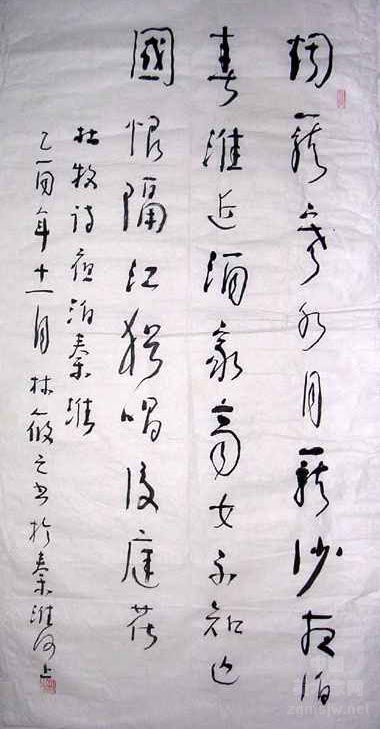 烟籠寒水月籠沙夜泊
秦淮近酒家商女不知亡
國恨隔江猶唱後庭花
杜牧詩夜泊秦淮
乙酉年十一月林筱之书於秦淮河上
zgmsjw.net